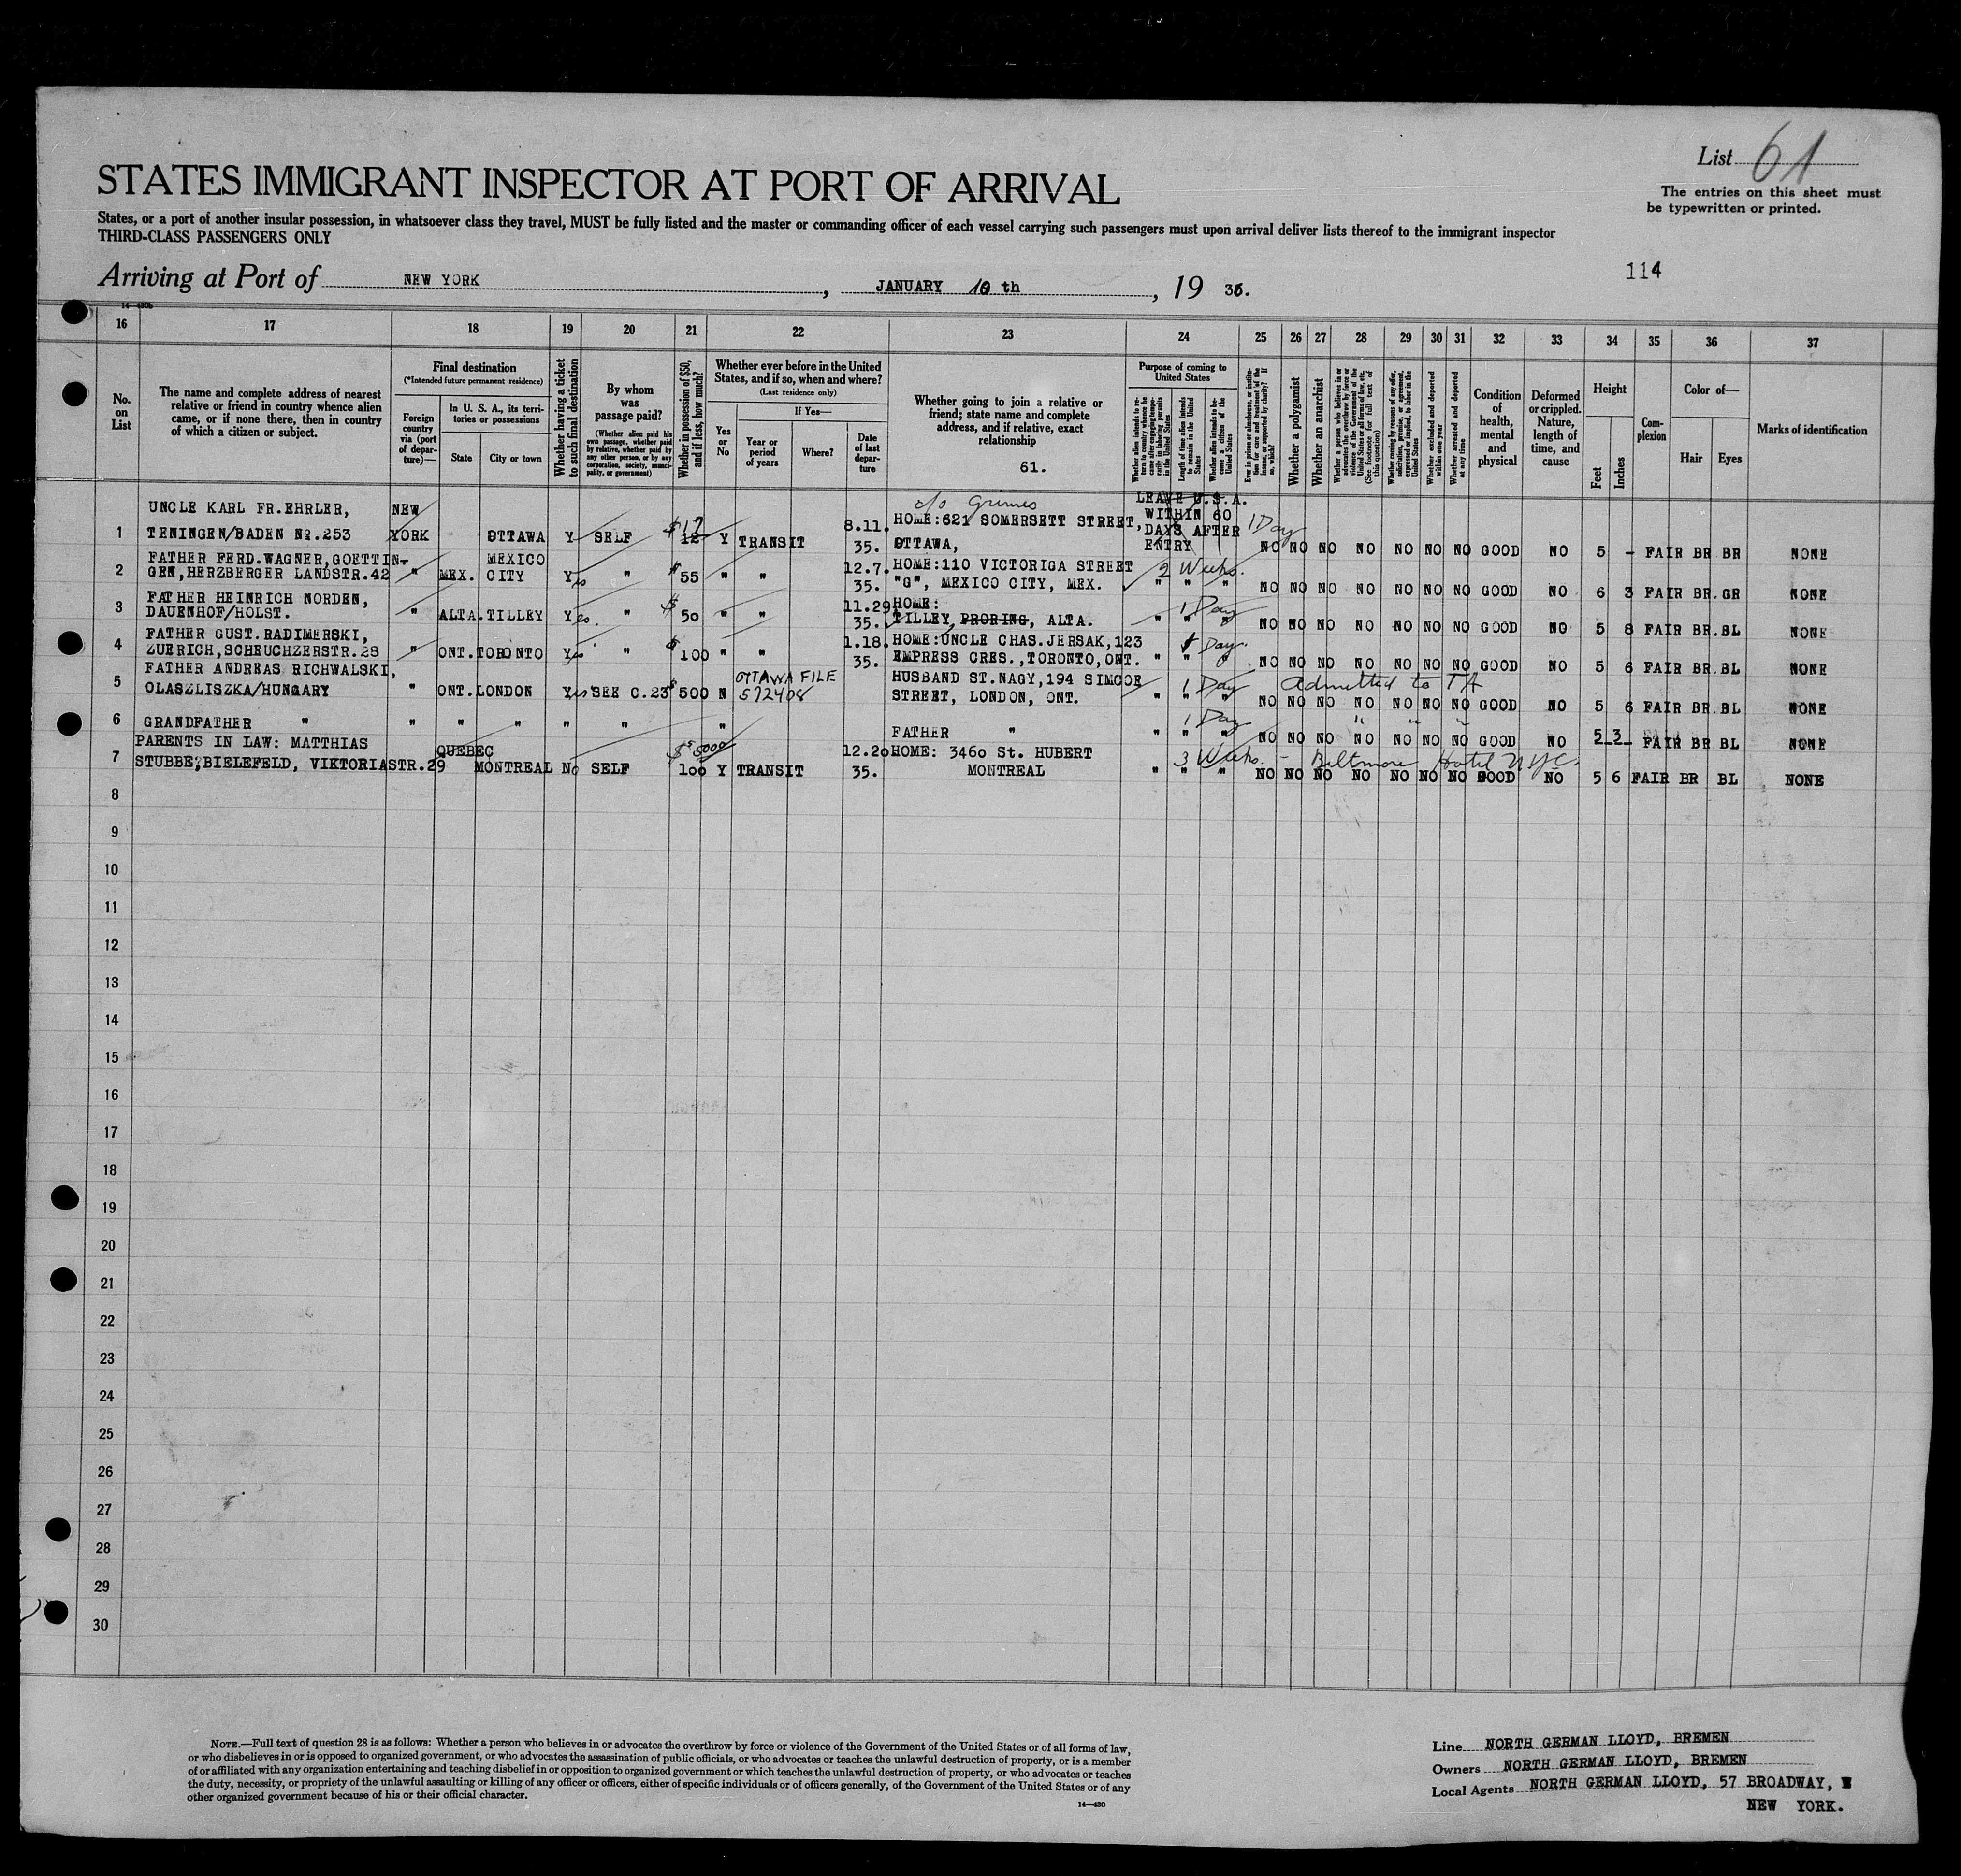 List 61
STATES IMMIGRANT INSPECTOR AT PORT OF ARRIVAL
The entries on this sheet must
be typewritten or printed.
States, or a port of another insular possession, in whatsoever class they travel, MUST be fully listed and the master or commanding officer of each vessel carrying such passengers must upon arrival deliver lists thereof to the immigrant inspector
THIRD-CLASS PASSENGERS ONLY
114
Arriving at Port of NEW YORK, JANUARY 10 th, 19 36.
16 17 18 19 20 21 22 23 24 25 26 27 28 29 30 31 32 33 34 35 36 37
No. on List
The name and complete address of nearest relative or friend in country whence alien came, or if none there, then in country of which a citizen or subject.
Final destination
(*Intended future permanent residence)
Foreign country via (port of departure)—
In U. S. A., its territories or possessions
State
City or town
Whether having a ticket to such final destination
By whom was passage paid?
(Whether alien paid his own passage, whether paid by relative, whether paid by any other person, or by any corporation, society, municipality, or government)
Whether in possession of $50, and if less, how much?
Whether ever before in the United States, and if so, when and where?
(Last residence only)
Yes or No
If Yes—
Year or period of years
Where?
Date of last departure
Whether going to join a relative or friend; state name and complete address, and if relative, exact relationship
61.
Purpose of coming to United States
Length of time alien intends to remain in the United States
Whether alien intends to become a citizen of the United States
Whether a polygamist
Whether an anarchist
Whether excluded and deported within one year
Whether arrested and deported at any time
Condition of health, mental and physical
Deformed or crippled. Nature, length of time, and cause
Height
Feet
Inches
Complexion
Color of—
Hair
Eyes
Marks of identification
c/o Grimes LEAVE U.S.A.
UNCLE KARL FR.EHRLER, NEW $17 8.11. HOME:621 SOMERSETT STREET, WITHIN 60 1 Day
1 TENINGEN/BADEN No.253 YORK OTTAWA Y SELF 12 Y TRANSIT 35. OTTAWA, DAYS AFTER ENTRY NO NO NO NO NO NO NO GOOD NO 5 - FAIR BR BR NONE
FATHER FERD.WAGNER,GOETTIN- MEXICO 12.7. HOME:110 VICTORIGA STREET 2 Weeks.
2 GEN,HERZBERGER LANDSTR.42 " MEX. CITY Yes " $55 " " 35. "G", MEXICO CITY, MEX. " " " NO NO NO NO NO NO NO GOOD NO 6 3 FAIR BR.GR NONE
FATHER HEINRICH NORDEN, 11.29 HOME: 1 Day
3 DAUENHOF/HOLST. " ALTA.TILLEY Yes. " $50 " " 35. TILLEY, PRORING, ALTA. " " " NO NO NO NO NO NO NO GOOD NO 5 8 FAIR BR.BL NONE
FATHER GUST.RADIMERSKI, 1.18. HOME:UNCLE CHAS.JERSAK,123 1 Day.
4 ZUERICH,SCHEUCHZERSTR.28 " ONT.TORONTO Yes " $100 " " 35. EMPRESS CRES.,TORONTO,ONT. " " " NO NO NO NO NO NO NO GOOD NO 5 6 FAIR BR.BL NONE
FATHER ANDREAS RICHWALSKI, OTTAWA FILE HUSBAND ST.NAGY,194 SIMCOE 1 Day Admitted to TA
5 OLASZLISZKA/HUNGARY " ONT.LONDON Yes SEE C.23 $500 N 572408 STREET, LONDON, ONT. " " " NO NO NO NO NO NO NO GOOD NO 5 6 FAIR BR.BL NONE
6 GRANDFATHER " " " " " " " FATHER " 1 Day " " " " " " NO NO NO NO NO NO NO GOOD NO 5 3 FAIR BR BL NONE
PARENTS IN LAW: MATTHIAS QUEBEC $5000 12.20 HOME: 3460 St. HUBERT 3 Weeks. - Biltmore Hotel NYC.
7 STUBBE,BIELEFELD, VIKTORIASTR.29 MONTREAL No SELF 100 Y TRANSIT 35. MONTREAL " " " NO NO NO NO NO NO NO GOOD NO 5 6 FAIR BR BL NONE
8
9
10
11
12
13
14
15
16
17
18
19
20
21
22
23
24
25
26
27
28
29
30
NOTE.—Full text of question 28 is as follows: Whether a person who believes in or advocates the overthrow by force or violence of the Government of the United States or of all forms of law,
or who disbelieves in or is opposed to organized government, or who advocates the assassination of public officials, or who advocates or teaches the unlawful destruction of property, or is a member
of or affiliated with any organization entertaining and teaching disbelief in or opposition to organized government or which teaches the unlawful destruction of property, or who advocates or teaches
the duty, necessity, or propriety of the unlawful assaulting or killing of any officer or officers, either of specific individuals or of officers generally, of the Government of the United States or of any
other organized government because of his or their official character.
14—430
Line NORTH GERMAN LLOYD, BREMEN
Owners NORTH GERMAN LLOYD, BREMEN
Local Agents NORTH GERMAN LLOYD, 57 BROADWAY,
NEW YORK.